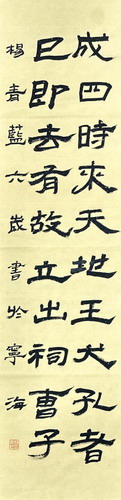 成四時來天地王大孔者
已即去有故立出祠曹子
楊青藍六歲書於寧海